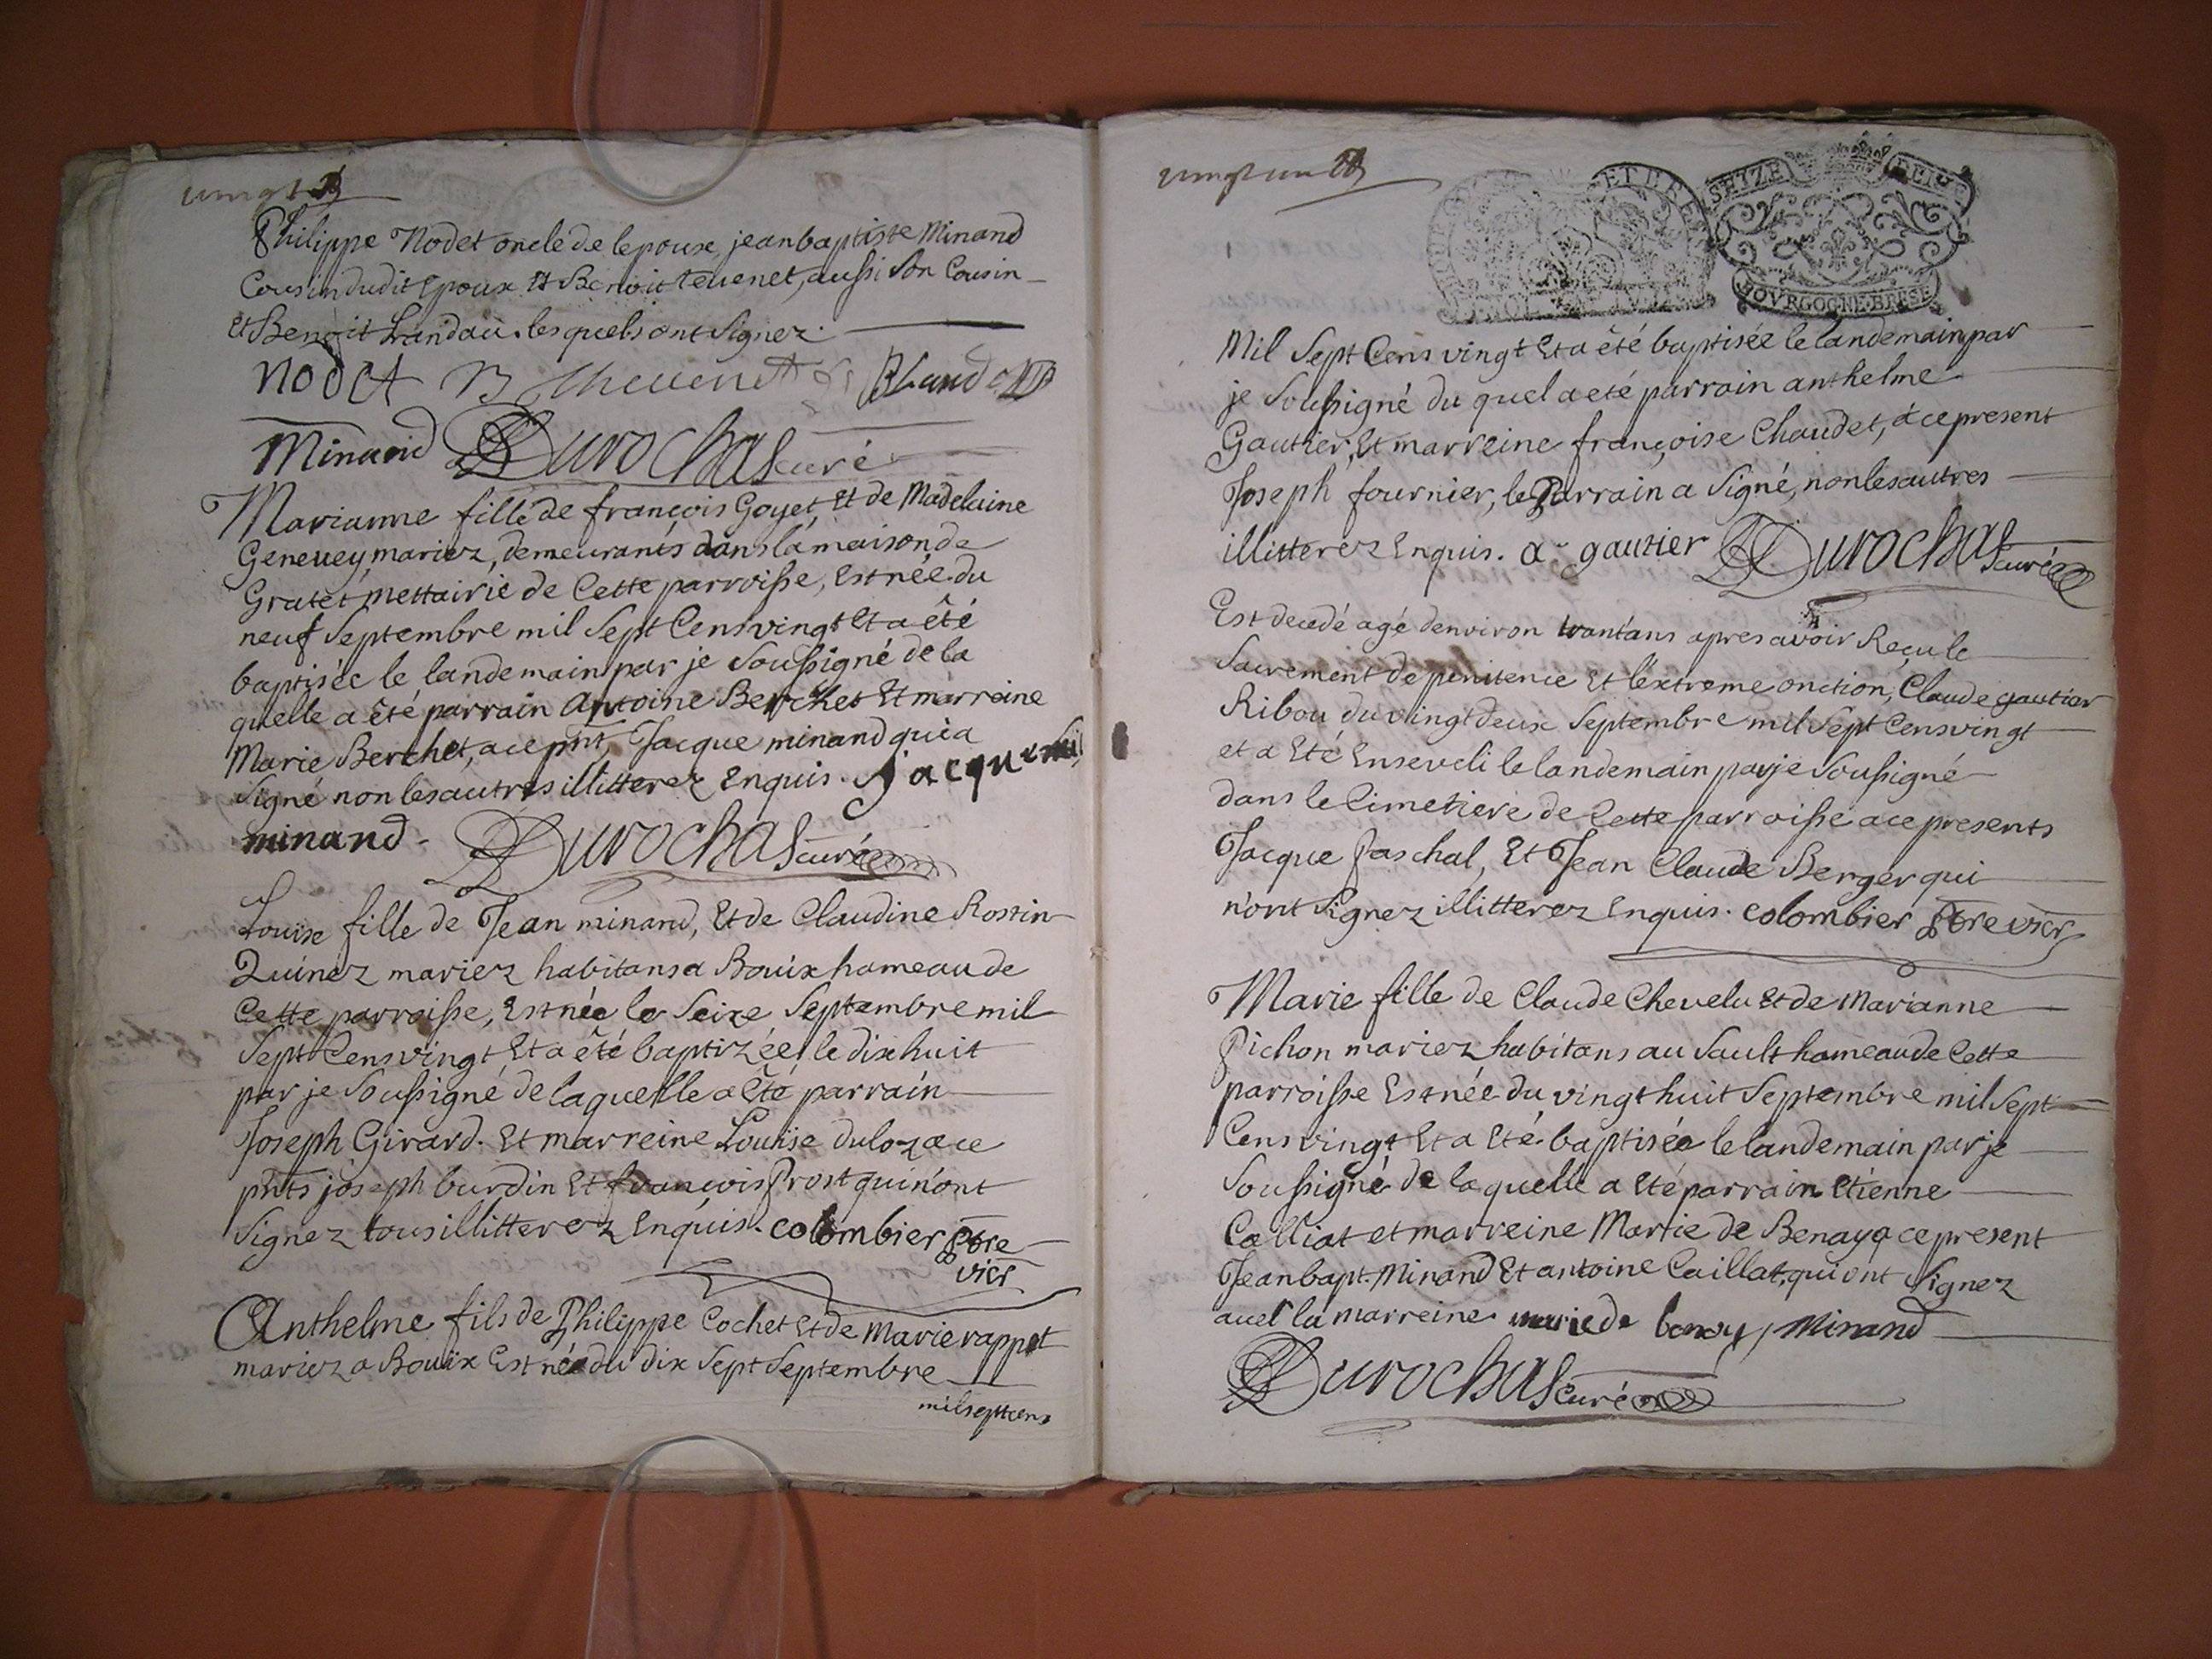 vingt
Philippe Nodet oncle de lepoux, jean baptiste Minand
Cousin dudit Epoux Et Benoit teuenet, aussi son Cousin
Et Benoit Landau. les quels ont signez.
Nodet B Theuenet B Landau
Minand Durochas curé
Marianne fille de françois Goyet, Et de Madelaine
Geneuey mariez, demeurants dans la maison de
Gratet mettairie de Cette parroisse, Est née du
neuf Septembre mil Sept Cens vingt Et a été
baptisée le landemain par je Soussigné de la
quelle a été parrain Antoine Berchet Et marreine
Marie Berchet, a ce pnt, Jacque minand qui a
signé non les autres illitterez Enquis. Jacque
minand. Durochas curé
Louise fille de Jean minand, Et de Claudine Rostin
Quinez mariez habitans a Bouix hameau de
Cette parroisse, Est née le Seize Septembre mil
Sept Cens vingt, Et a été baptizée, le dix huit
par je Soussigné de laquelle a Eté parrain
Joseph Girard. Et marreine Louise duloz a ce
pnts joseph burdin Et françois Prost qui n'ont
signez tous illitterez Enquis. colombier ptre
vicr
Anthelme fils de Philippe Cochet Et de Marie rappet
mariez a Bouix Est née du dix Sept Septembre
mil sept cens
vingt un
ET BRE
SEIZE DEN
BOVRGOGNE.BRESE
Mil Sept Cens vingt Et a été baptisée le landemain par
je Soussigné du quel a eté parrain anthelme
Gautier, Et marreine françoise Chaudet, a ce present
Joseph fournier, le Parrain a Signé, non les autres
illitterez Enquis. a gautier Durochas curé
Est decedé agé denviron trant'ans apres avoir Reçu le
Sacrement de penitence Et l'extreme onction, Claude gautier
Ribou du vingt deux Septembre mil Sept Cens vingt
et a Eté Enseveli le landemain par je Soussigné
dans le Cimetiere de Cette parroisse a ce presents
Jacque Paschal, Et Jean Claude Berger qui
n'ont Signez illitterez Enquis. colombier ptre vicr
Marie fille de Claude Chevelu Et de Marianne
Pichon mariez habitans au Sault hameau de Cette
parroisse Est née du vingt huit Septembre mil Sept
Cens vingt Et a Eté baptisée le landemain par je
Soussigné de la quelle a Eté parrain Etienne
Calliat et marreine Marie de Benay a ce present
Jean bapt. Minand Et antoine Caillat, qui ont Signez
auec la marreine marie de benay, Minand
Durochas curé